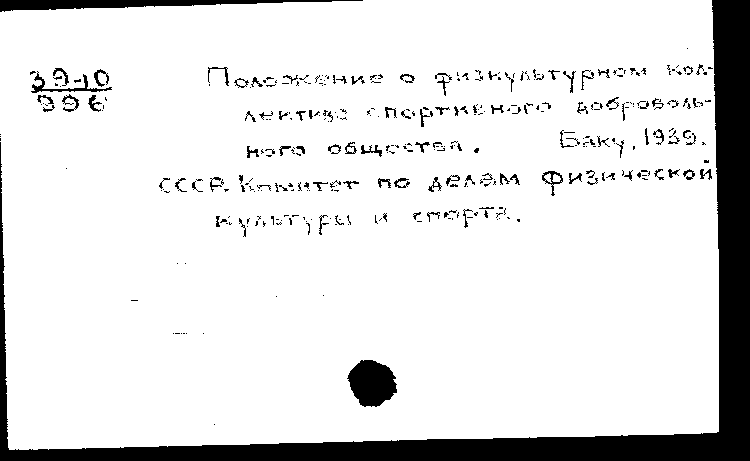 39-10
996
Положение о физкультурном кол-
лективе спортивного доброволь-
ного общества. Баку, 1939.
СССР. Комитет по делам физической
культуры и спорта.